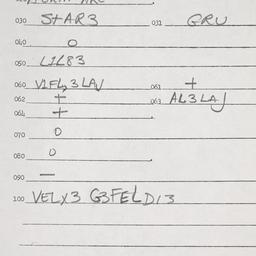 030 STAR3 031 GRU
040 O
050 L1L83
060 V1FL3LAJ 061 +
062 + 063 AL3LAJ
064 +
070 O
080 O
090 —
100 VELX3 G3FELD13